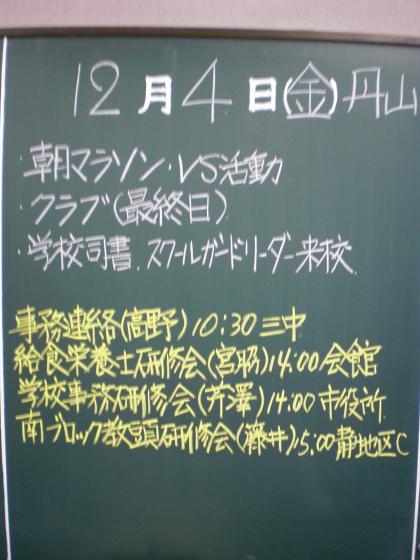 12月4日(金)丹山
・朝マラソン・VS活動
・クラブ(最終日)
・学校司書、スクールガードリーダー来校
事務連絡(高野)10:30三中
給食栄養士研修会(宮脇)14:00会館
学校事務研修会(芹澤)14:00市役所
南ブロック教頭研修会(藤井)15:00静地区C